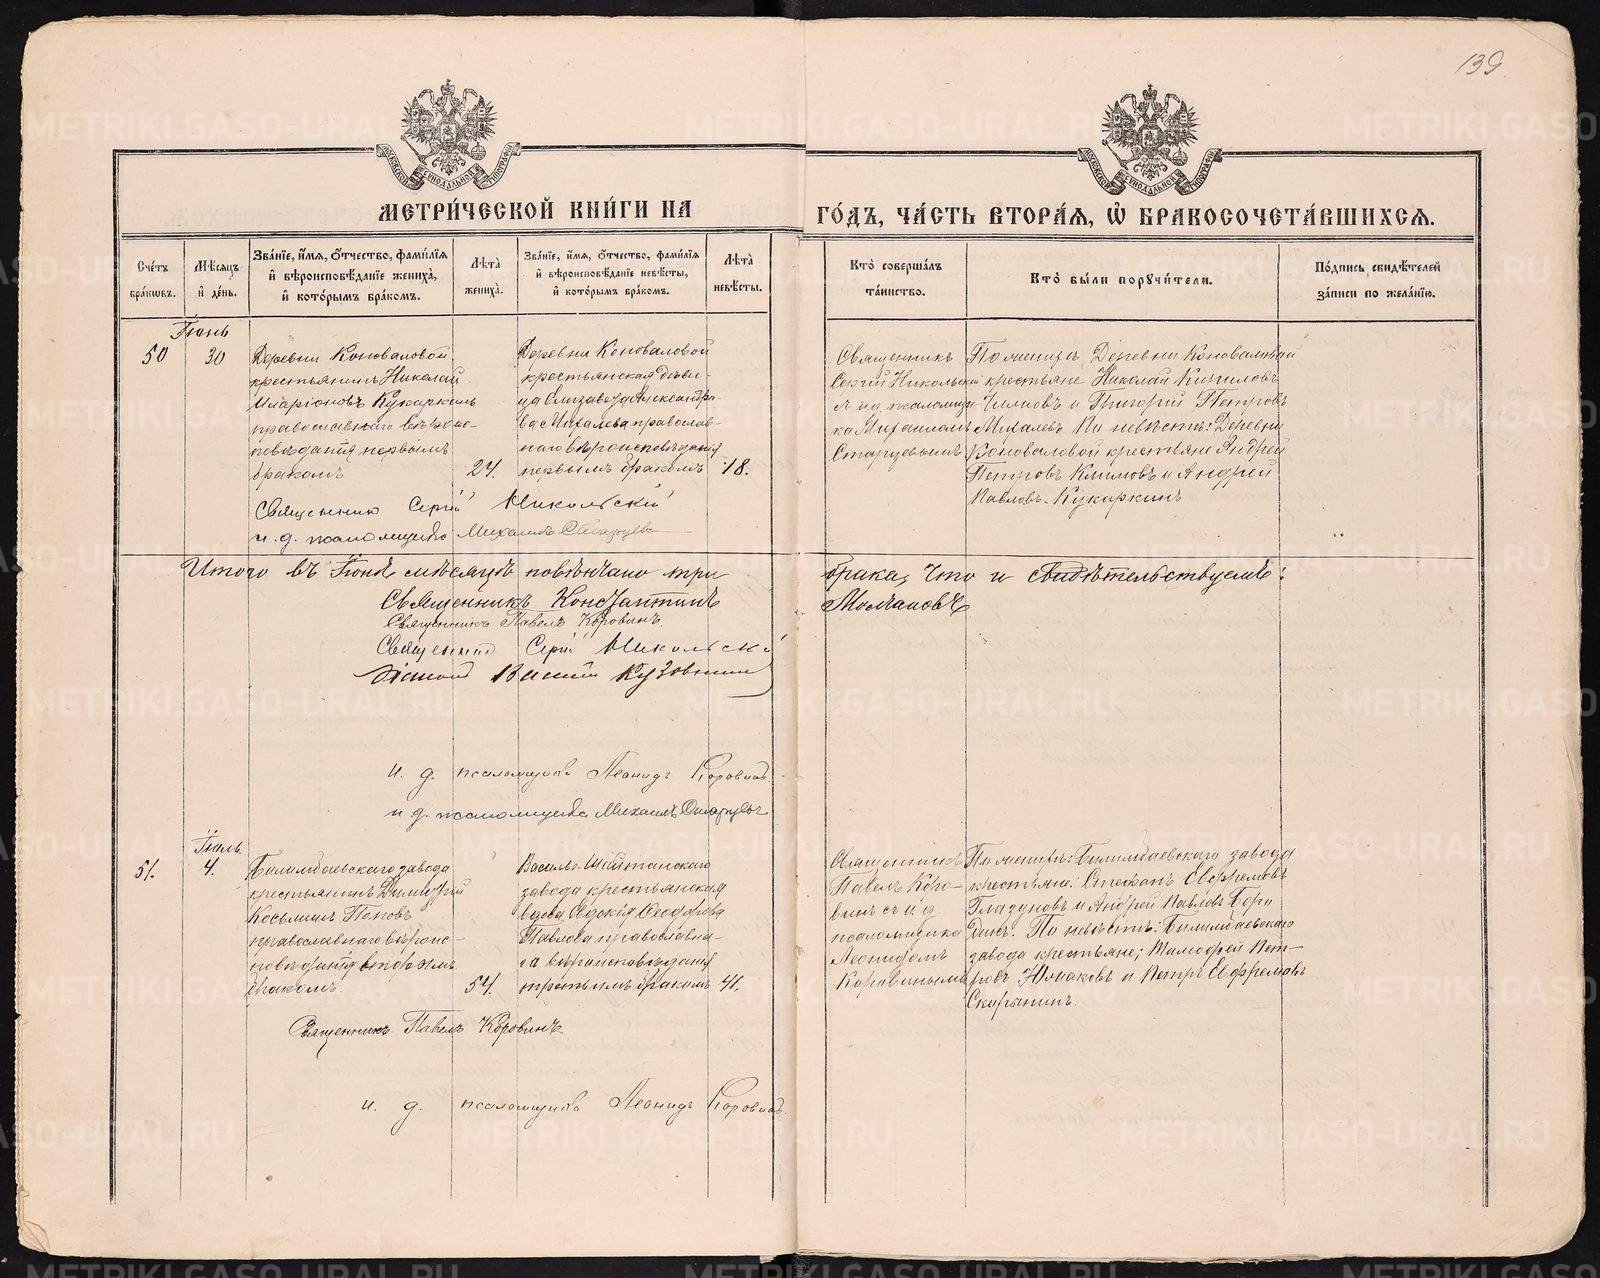 139
МОСКОВСКОЙ СѴНОДАЛЬНОЙ ТИПОГРАФІИ
МОСКОВСКОЙ СѴНОДАЛЬНОЙ ТИПОГРАФІИ
МЕТРИ́ЧЕСКОЙ КНИ́ГИ НА ГО́ДЪ, ЧА́СТЬ ВТОРА́Ѧ, Ѡ҆ БРАКОСОЧЕТА́ВШИХСѦ.
Сче́тъ бра́кѡвъ.
Мѣ́сѧцъ и҆ де́нь.
Зва́нїе, и҆́мѧ, ѻ҆́тчество, фами́лїѧ и҆ вѣроисповѣ́данїе жениха̀, и҆ кото́рымъ бра́комъ.
Лѣ́та жениха̀.
Зва́нїе, и҆́мѧ, ѻ҆́тчество, фами́лїѧ и҆ вѣроисповѣ́данїе невѣ́сты, и҆ кото́рымъ бра́комъ.
Лѣ́та невѣ́сты.
Кто̀ соверша́лъ та́инство.
Кто̀ бы́ли порꙋчи́тели.
По́дпись свидѣ́телей за́писи по жела́нїю.
Іюнь
50
30
Деревни Коноваловой
крестьянинъ Николай
Иларіоновъ Кукаркинъ
православнаго вѣроис-
повѣданія первымъ
бракомъ
24.
Деревни Коноваловой
крестьянская дѣви-
ца Елизавета Александро-
ва Михалева православ-
наго вѣроисповѣданія
первымъ бракомъ
18.
Священникъ
Сергій Никольскій
и д псаломщи-
ка Михаиломъ
Старцевымъ
По женихѣ: Деревни Коноваловой
крестьяне Николай Кириловъ
Климовъ и Григорій Петровъ
Михалевъ По невѣстѣ: Деревни
Коноваловой крестьяне Андрей
Петровъ Климовъ и Андрей
Павловъ Кукаркинъ
Священникъ Сергій Никольскій
и. д. псаломщика Михаилъ Старцевъ
Итого въ Іюнѣ мѣсяцѣ повѣнчано три брака, что и свидѣтельствуемъ:
Священникъ Константинъ Молчановъ
Священникъ Павелъ Коровинъ.
Священникъ Сергій Никольскій
Діаконъ Василій Кузовниковъ
и. д. псаломщика Леонидъ Коровинъ
и д. псаломщика Михаилъ Старцевъ
Іюль.
51.
4.
Билимбаевскаго завода
крестьянинъ Димитрій
Косьминъ Поповъ
православнаго вѣроис-
повѣданія вторымъ
бракомъ.
54.
Василь-Шайтанскаго
завода крестьянская
вдова Евдокія Ѳеодорова
Павлова православна-
го вѣроисповѣданія
третьимъ бракомъ
41.
Священникъ
Павелъ Коро-
винъ съ и д
псаломщика
Леонидомъ
Коровинымъ
По женихѣ: Билимбаевскаго завода
крестьяне: Стефанъ Евфремовъ
Глазуновъ и Андрей Павловъ Боро
динъ. По невѣстѣ: Билимбаевскаго
завода крестьяне; Тимофей Пет-
ровъ Юшаковъ и Петръ Евфремовъ
Скорынинъ.
Священникъ Павелъ Коровинъ
и. д. псаломщика Леонидъ Коровинъ
METRIKI.GASO-URAL.RU